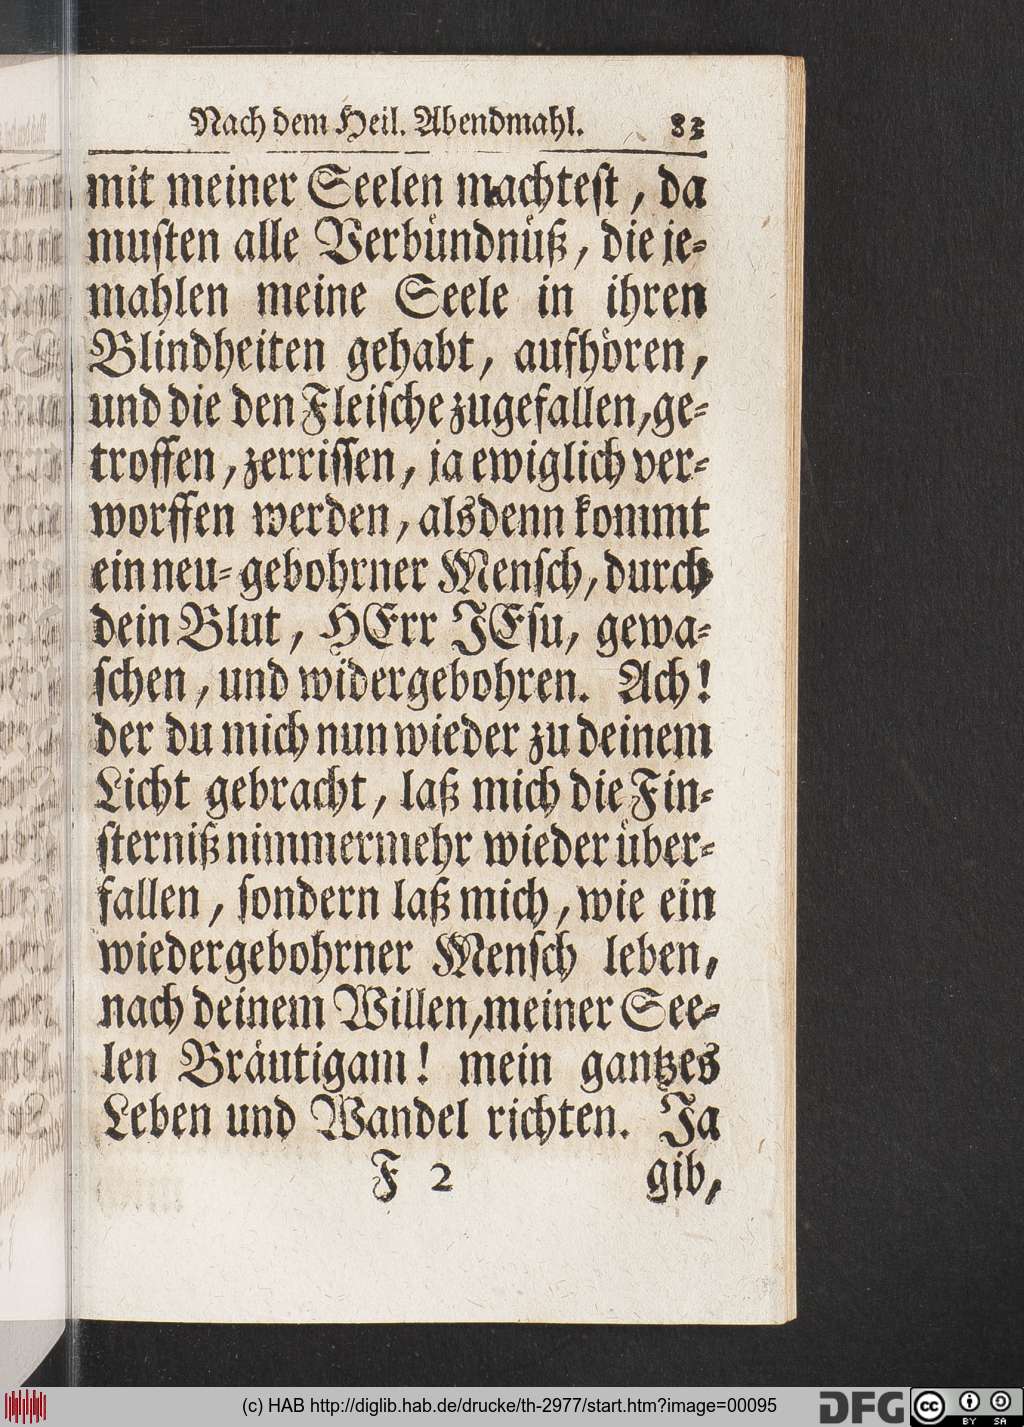 Nach dem Heil. Abendmahl. 83
mit meiner Seelen machtest, da
musten alle Verbündnüß, die je-
mahlen meine Seele in ihren
Blindheiten gehabt, aufhören,
und die den Fleische zugefallen, ge-
troffen, zerrissen, ja ewiglich ver-
worffen werden, alsdenn kommt
ein neu-gebohrner Mensch, durch
dein Blut, HErr JEsu, gewa-
schen, und widergebohren. Ach!
der du mich nun wieder zu deinem
Licht gebracht, laß mich die Fin-
sterniß nimmermehr wieder über-
fallen, sondern laß mich, wie ein
wiedergebohrner Mensch leben,
nach deinem Willen, meiner See-
len Bräutigam! mein gantzes
Leben und Wandel richten. Ja
F 2 gib,
(c) HAB http://diglib.hab.de/drucke/th-2977/start.htm?image=00095
DFG
cc BY SA